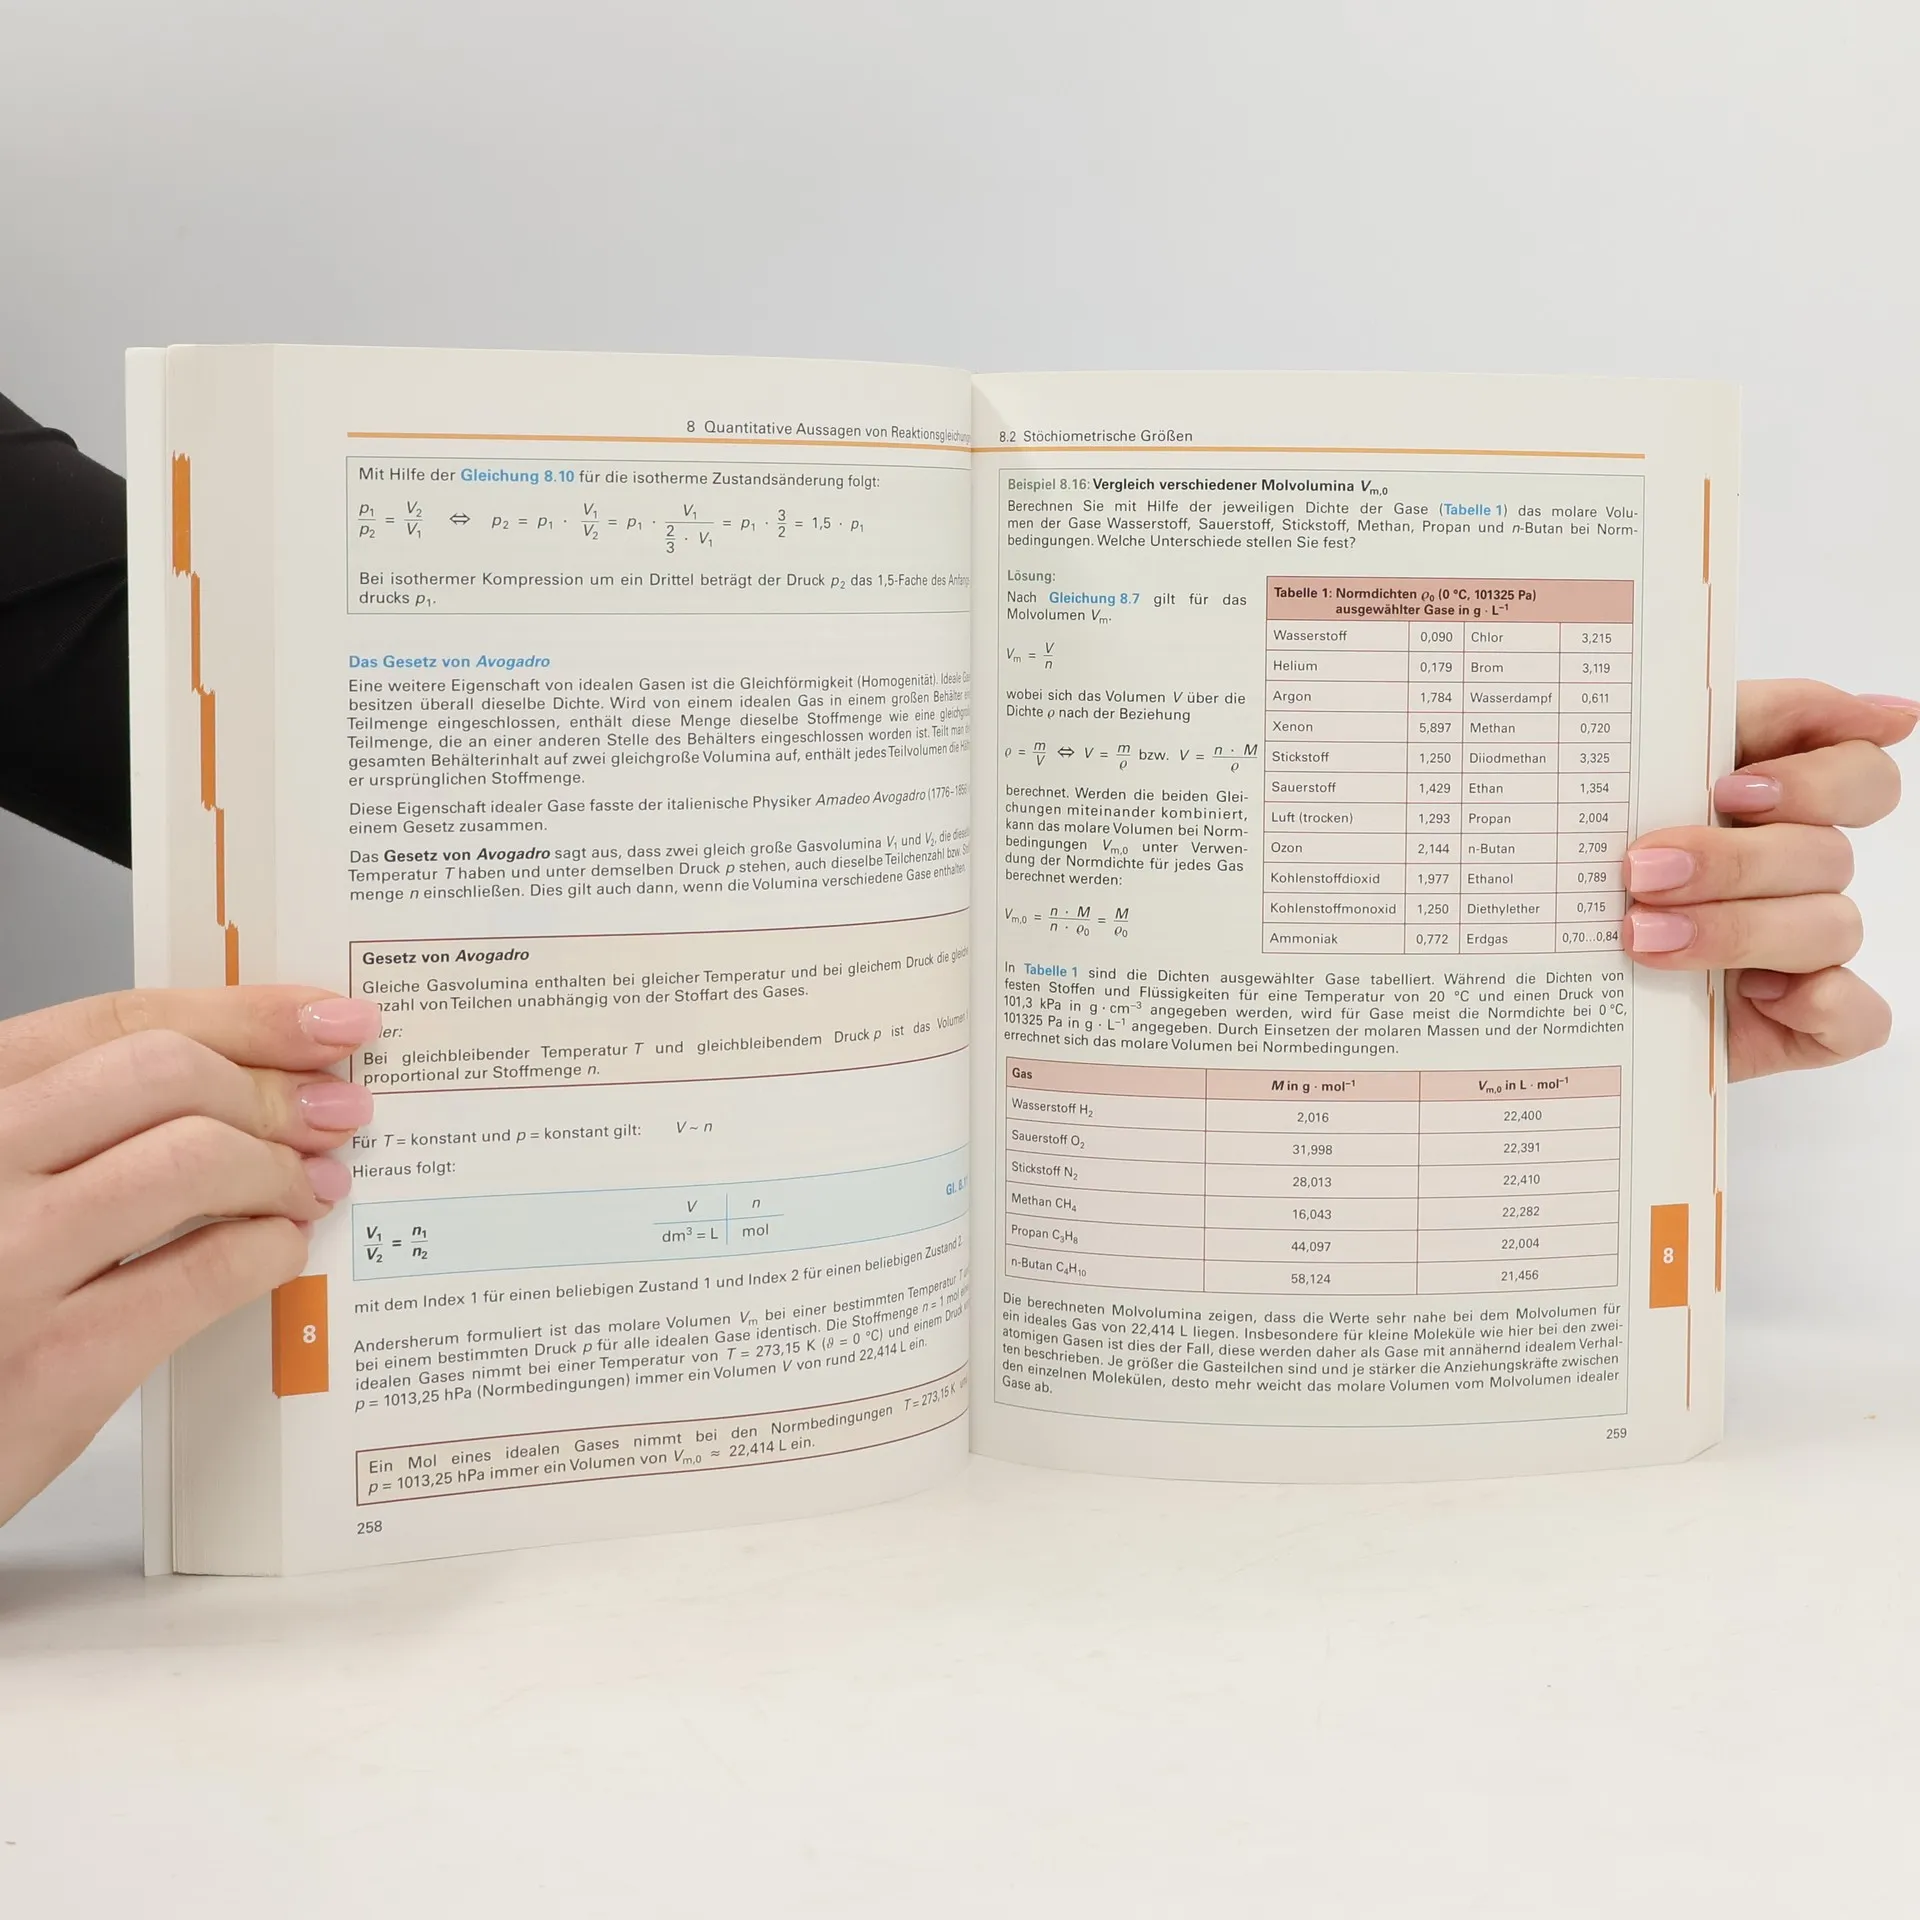 8 Quantitative Aussagen von
Mit Hilfe der Gleichung 8.10 für die isotherme Zustandsänderung folgt:
p₁/p₂ = V₂/V₁ ⇔ p₂ = p₁ · V₁/V₂ = p₁ · V₁/(2/3 · V₁) = p₁ · 3/2 = 1,5 · p₁
Bei isothermer Kompression um ein Drittel beträgt der Druck p₂ das 1,5-Fache des
drucks p₁.
Das Gesetz von Avogadro
Eine weitere Eigenschaft von idealen Gasen ist die Gleichförmigkeit (Homogenität). Ideale
besitzen überall dieselbe Dichte. Wird von einem idealen Gas in einem großen Behälter
Teilmenge eingeschlossen, enthält diese Menge dieselbe Stoffmenge wie eine
Teilmenge, die an einer anderen Stelle des Behälters eingeschlossen worden ist. Teilt man
gesamten Behälterinhalt auf zwei gleichgroße Volumina auf, enthält jedes Teilvolumen die
er ursprünglichen Stoffmenge.
Diese Eigenschaft idealer Gase fasste der italienische Physiker Amadeo Avogadro (1776–1856)
einem Gesetz zusammen.
Das Gesetz von Avogadro sagt aus, dass zwei gleich große Gasvolumina V₁ und V₂, die
Temperatur T haben und unter demselben Druck p stehen, auch dieselbe Teilchenzahl bzw.
menge n einschließen. Dies gilt auch dann, wenn die Volumina verschiedene Gase enthalten.
Gesetz von Avogadro
Gleiche Gasvolumina enthalten bei gleicher Temperatur und bei gleichem Druck die
nzahl von Teilchen unabhängig von der Stoffart des Gases.
er:
Bei gleichbleibender Temperatur T und gleichbleibendem Druck p ist das Volumen
proportional zur Stoffmenge n.
Für T = konstant und p = konstant gilt: V ~ n
Hieraus folgt:
Gl. 8.1
V₁/V₂ = n₁/n₂
V n
dm³ = L mol
mit dem Index 1 für einen beliebigen Zustand 1 und Index 2 für einen beliebigen Zustand 2.
Andersherum formuliert ist das molare Volumen Vₘ bei einer bestimmten Temperatur T
bei einem bestimmten Druck p für alle idealen Gase identisch. Die Stoffmenge n = 1 mol
idealen Gases nimmt bei einer Temperatur von T = 273,15 K (ϑ = 0 °C) und einem Druck
p = 1013,25 hPa (Normbedingungen) immer ein Volumen V von rund 22,414 L ein.
Ein Mol eines idealen Gases nimmt bei den Normbedingungen T = 273,15 K
p = 1013,25 hPa immer ein Volumen von Vₘ,₀ ≈ 22,414 L ein.
8
258
8.2 Stöchiometrische Größen
Beispiel 8.16: Vergleich verschiedener Molvolumina Vₘ,₀
Berechnen Sie mit Hilfe der jeweiligen Dichte der Gase (Tabelle 1) das molare Volu-
men der Gase Wasserstoff, Sauerstoff, Stickstoff, Methan, Propan und n-Butan bei Norm-
bedingungen. Welche Unterschiede stellen Sie fest?
Lösung:
Nach Gleichung 8.7 gilt für das
Molvolumen Vₘ.
Vₘ = V/n
wobei sich das Volumen V über die
Dichte ρ nach der Beziehung
ρ = m/V ⇔ V = m/ρ bzw. V = n · M/ρ
berechnet. Werden die beiden Glei-
chungen miteinander kombiniert,
kann das molare Volumen bei Norm-
bedingungen Vₘ,₀ unter Verwen-
dung der Normdichte für jedes Gas
berechnet werden:
Vₘ,₀ = n · M/n · ρ₀ = M/ρ₀
Tabelle 1: Normdichten ρ₀ (0 °C, 101325 Pa)
ausgewählter Gase in g · L⁻¹
Wasserstoff 0,090 Chlor 3,215
Helium 0,179 Brom 3,119
Argon 1,784 Wasserdampf 0,611
Xenon 5,897 Methan 0,720
Stickstoff 1,250 Diiodmethan 3,325
Sauerstoff 1,429 Ethan 1,354
Luft (trocken) 1,293 Propan 2,004
Ozon 2,144 n-Butan 2,709
Kohlenstoffdioxid 1,977 Ethanol 0,789
Kohlenstoffmonoxid 1,250 Diethylether 0,715
Ammoniak 0,772 Erdgas 0,70...0,84
In Tabelle 1 sind die Dichten ausgewählter Gase tabelliert. Während die Dichten von
festen Stoffen und Flüssigkeiten für eine Temperatur von 20 °C und einen Druck von
101,3 kPa in g · cm⁻³ angegeben werden, wird für Gase meist die Normdichte bei 0 °C,
101325 Pa in g · L⁻¹ angegeben. Durch Einsetzen der molaren Massen und der Normdichten
errechnet sich das molare Volumen bei Normbedingungen.
Gas M in g · mol⁻¹ Vₘ,₀ in L · mol⁻¹
Wasserstoff H₂ 2,016 22,400
Sauerstoff O₂ 31,998 22,391
Stickstoff N₂ 28,013 22,410
Methan CH₄ 16,043 22,282
Propan C₃H₈ 44,097 22,004
n-Butan C₄H₁₀ 58,124 21,456
Die berechneten Molvolumina zeigen, dass die Werte sehr nahe bei dem Molvolumen für
ein ideales Gas von 22,414 L liegen. Insbesondere für kleine Moleküle wie hier bei den zwei-
atomigen Gasen ist dies der Fall, diese werden daher als Gase mit annähernd idealem Verhal-
ten beschrieben. Je größer die Gasteilchen sind und je stärker die Anziehungskräfte zwischen
den einzelnen Molekülen, desto mehr weicht das molare Volumen vom Molvolumen idealer
Gase ab.
8
259